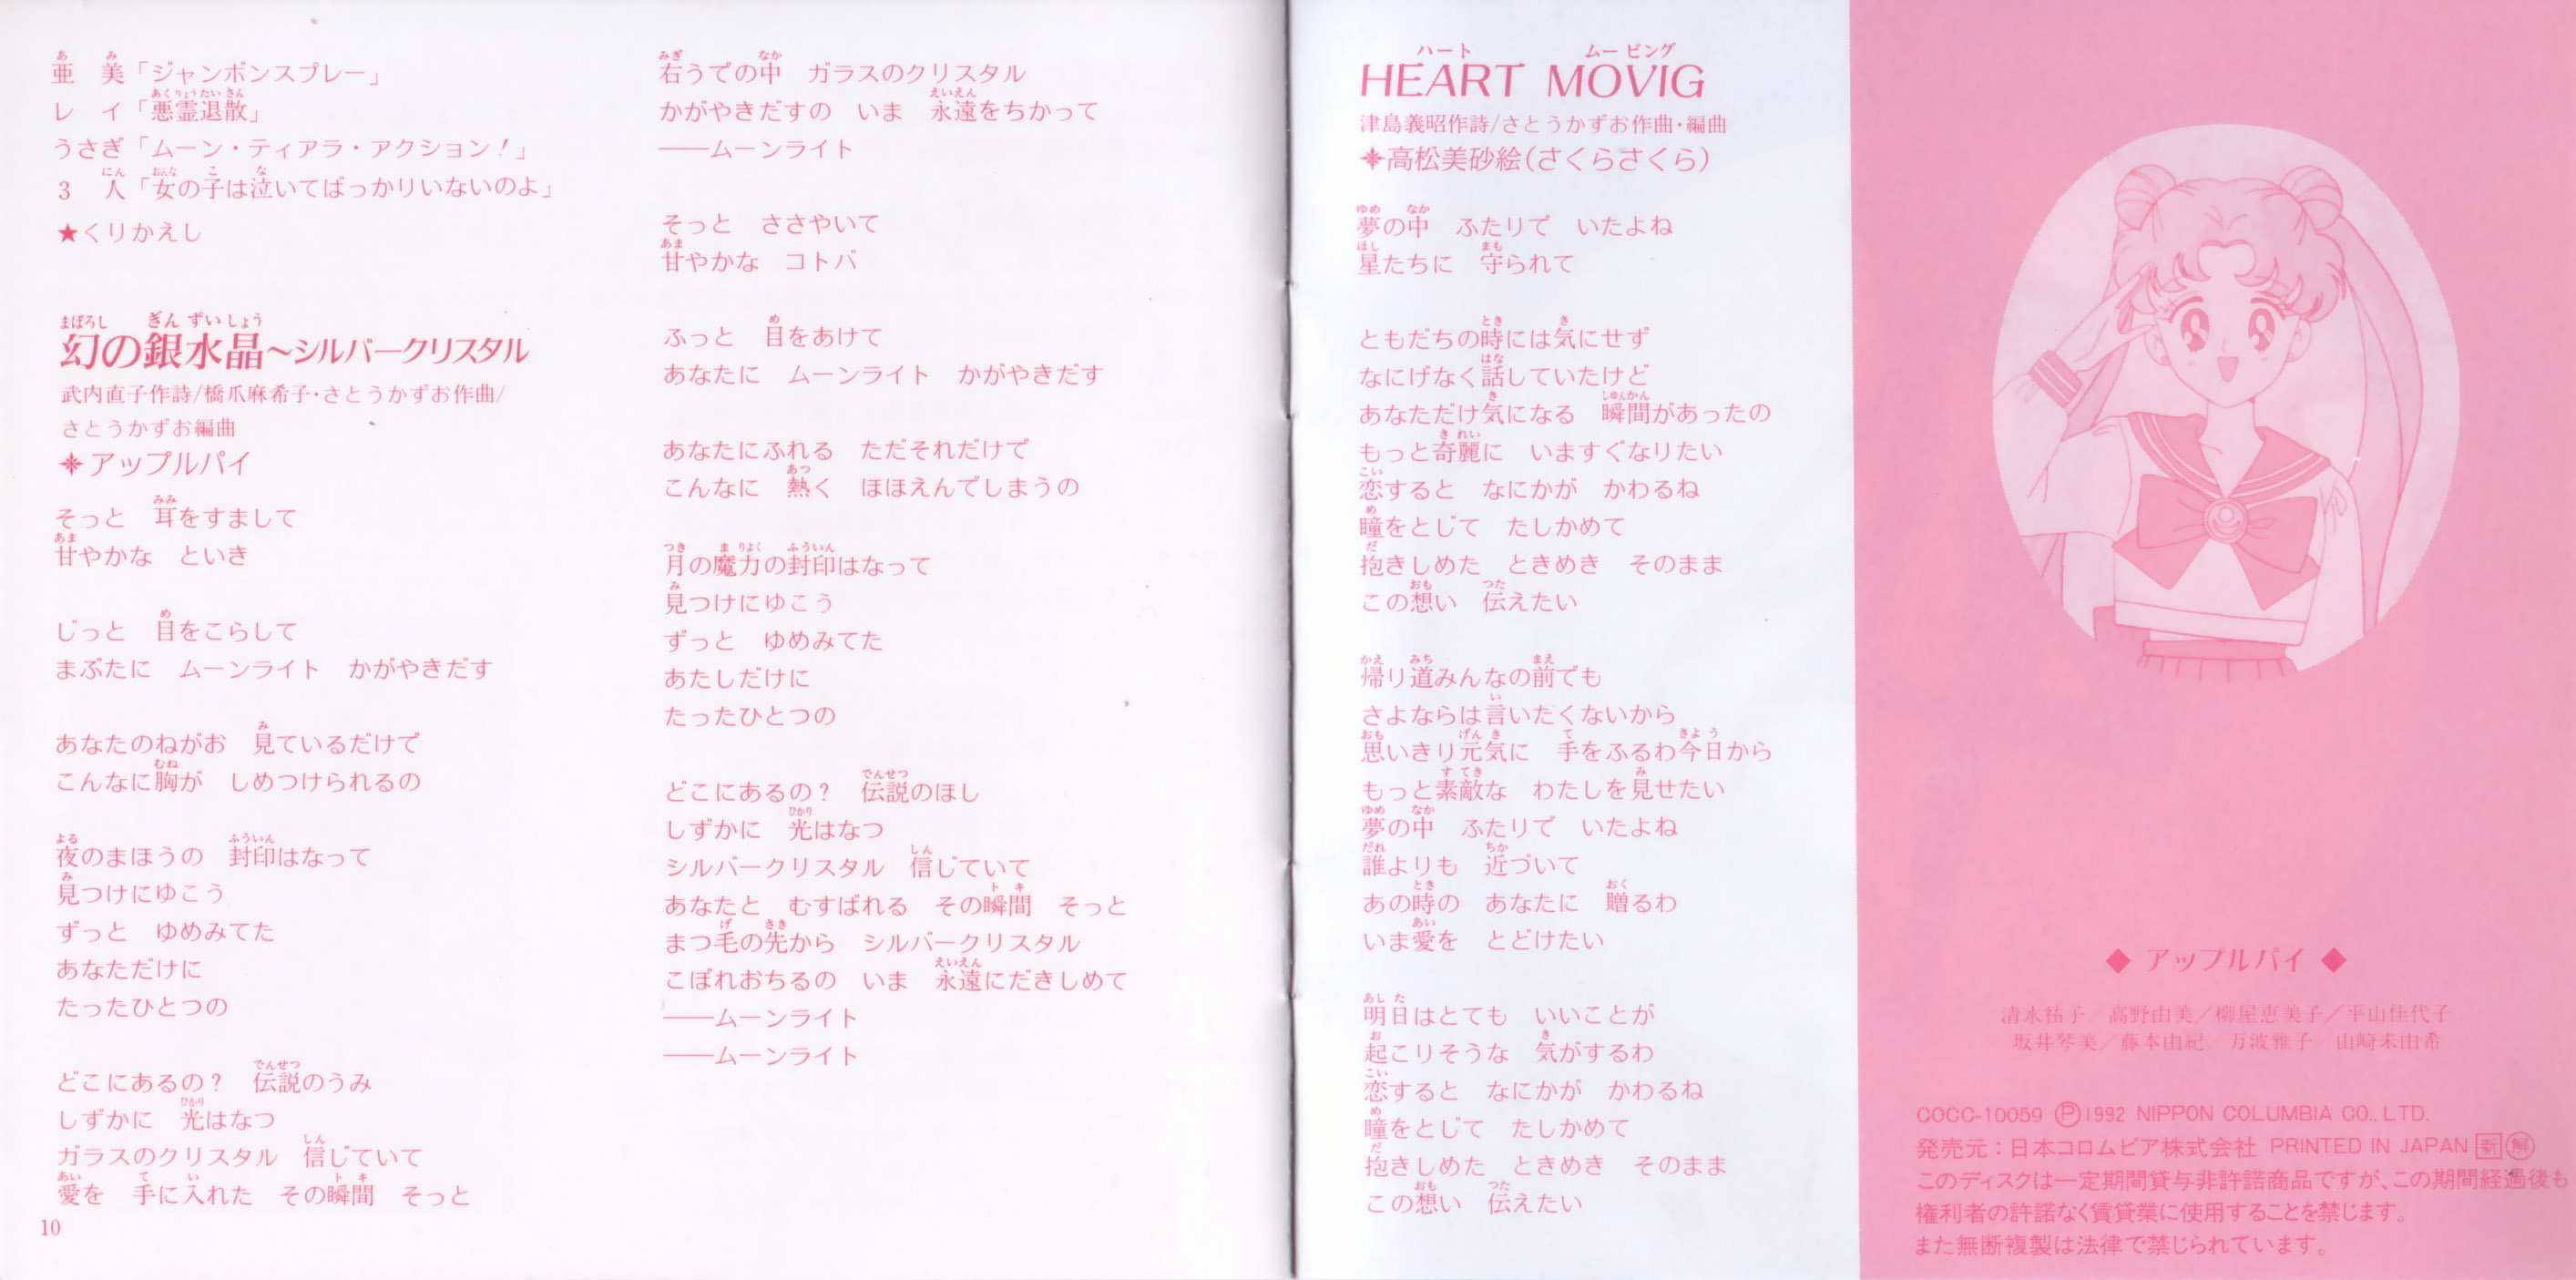 亜　美「ジャンボンスプレー」
レ　イ「悪霊退散」
うさぎ「ムーン・ティアラ・アクション！」
3　人「女の子は泣いてばっかりいないのよ」
★くりかえし
幻の銀水晶～シルバークリスタル
武内直子作詩/橋爪麻希子・さとうかずお作曲/
さとうかずお編曲
アップルパイ
そっと　耳をすまして
甘やかな　といき
じっと　目をこらして
まぶたに　ムーンライト　かがやきだす
あなたのねがお　見ているだけで
こんなに胸が　しめつけられるの
夜のまほうの　封印はなって
見つけにゆこう
ずっと　ゆめみてた
あなただけに
たったひとつの
どこにあるの？　伝説のうみ
しずかに　光はなつ
ガラスのクリスタル　信じていて
愛を　手に入れた　その瞬間　そっと
10
右うでの中　ガラスのクリスタル
かがやきだすの　いま　永遠をちかって
――ムーンライト
そっと　ささやいて
甘やかな　コトバ
ふっと　目をあけて
あなたに　ムーンライト　かがやきだす
あなたにふれる　ただそれだけで
こんなに　熱く　ほほえんでしまうの
月の魔力の封印はなって
見つけにゆこう
ずっと　ゆめみてた
あたしだけに
たったひとつの
どこにあるの？　伝説のほし
しずかに　光はなつ
シルバークリスタル　信じていて
あなたと　むすばれる　その瞬間　そっと
まつ毛の先から　シルバークリスタル
こぼれおちるの　いま　永遠にだきしめて
――ムーンライト
――ムーンライト
ハート　ムービング
HEART MOVIG
津島義昭作詩/さとうかずお作曲・編曲
高松美砂絵(さくらさくら)
夢の中　ふたりで　いたよね
星たちに　守られて
ともだちの時には気にせず
なにげなく話していたけど
あなただけ気になる　瞬間があったの
もっと奇麗に　いますぐなりたい
恋すると　なにかが　かわるね
瞳をとじて　たしかめて
抱きしめた　ときめき　そのまま
この想い　伝えたい
帰り道みんなの前でも
さよならは言いたくないから
思いきり元気に　手をふるわ今日から
もっと素敵な　わたしを見せたい
夢の中　ふたりで　いたよね
誰よりも　近づいて
あの時の　あなたに　贈るわ
いま愛を　とどけたい
明日はとても　いいことが
起こりそうな　気がするわ
恋すると　なにかが　かわるね
瞳をとじて　たしかめて
抱きしめた　ときめき　そのまま
この想い　伝えたい
◆ アップルパイ ◆
清水祐子／高野由美／柳屋恵美子／平山佳代子
坂井琴美／藤本由紀／万波雅子／山崎未由希
COCC-10059 Ⓟ1992 NIPPON COLUMBIA CO., LTD.
発売元：日本コロムビア株式会社 PRINTED IN JAPAN 新 解
このディスクは一定期間貸与非許諾商品ですが、この期間経過後も
権利者の許諾なく賃貸業に使用することを禁じます。
また無断複製は法律で禁じられています。